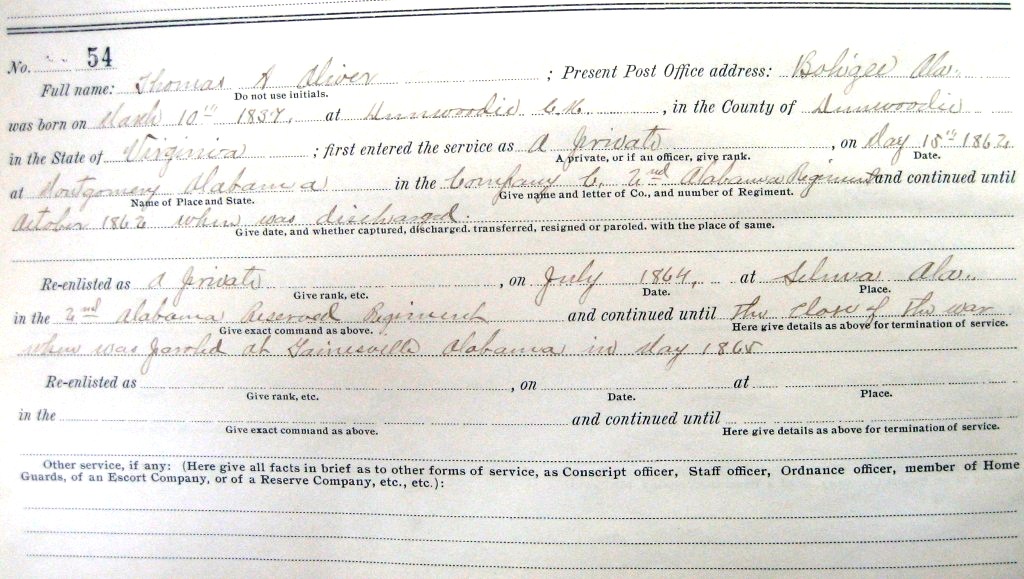 No. 54
Full name: Thomas A Oliver ; Present Post Office address: Boligee Ala.
Do not use initials.
was born on March 10th 1837. at Dinwoodie C.H. , in the County of Dinwoodie
in the State of Virginia ; first entered the service as A Private , on May 15th 1862
A private, or if an officer, give rank. Date.
at Montgomery Alabama in the Company C. 2nd Alabama Regiment and continued until
Name of Place and State. Give name and letter of Co., and number of Regiment.
October 1862 when was discharged.
Give date, and whether captured, discharged, transferred, resigned or paroled, with the place of same.
Re-enlisted as A Private , on July 1864, at Selma Ala.
Give rank, etc. Date. Place.
in the 2nd Alabama Reserved Regiment and continued until The Close of The war
Give exact command as above. Here give details as above for termination of service.
when was Paroled at Gainesville Alabama in May 1865
Re-enlisted as , on at
Give rank, etc. Date. Place.
in the and continued until
Give exact command as above. Here give details as above for termination of service.
Other service, if any: (Here give all facts in brief as to other forms of service, as Conscript officer, Staff officer, Ordnance officer, member of Home
Guards, of an Escort Company, or of a Reserve Company, etc., etc.):